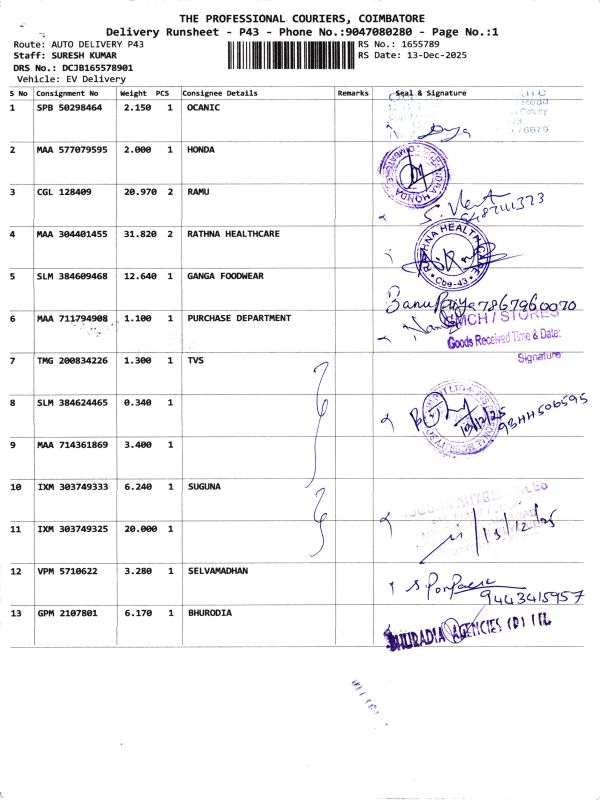 THE PROFESSIONAL COURIERS, COIMBATORE
Delivery Runsheet - P43 - Phone No.:9047080280 - Page No.:1
Route: AUTO DELIVERY P43 RS No.: 1655789
Staff: SURESH KUMAR RS Date: 13-Dec-2025
DRS No.: DCJB165578901
Vehicle: EV Delivery
S No Consignment No Weight PCS Consignee Details Remarks Seal & Signature
1 SPB 50298464 2.150 1 OCANIC
2 MAA 577079595 2.000 1 HONDA
HONDA
3 CGL 128409 20.970 2 RAMU
4 MAA 304401455 31.820 2 RATHNA HEALTHCARE
RATHNA HEALTH CARE
Cbe-43
5 SLM 384609468 12.640 1 GANGA FOODWEAR
Banu Priya 7867960070
6 MAA 711794908 1.100 1 PURCHASE DEPARTMENT
GMCH / STORES
Goods Received Time & Date:
Signature
7 TMG 200834226 1.300 1 TVS
8 SLM 384624465 0.340 1
13/12/25
9 MAA 714361869 3.400 1
10 IXM 303749333 6.240 1 SUGUNA
11 IXM 303749325 20.000 1
13/12/25
12 VPM 5710622 3.280 1 SELVAMADHAN
9443415957
13 GPM 2107801 6.170 1 BHURODIA
BHURADIA AGENCIES (P) LTD